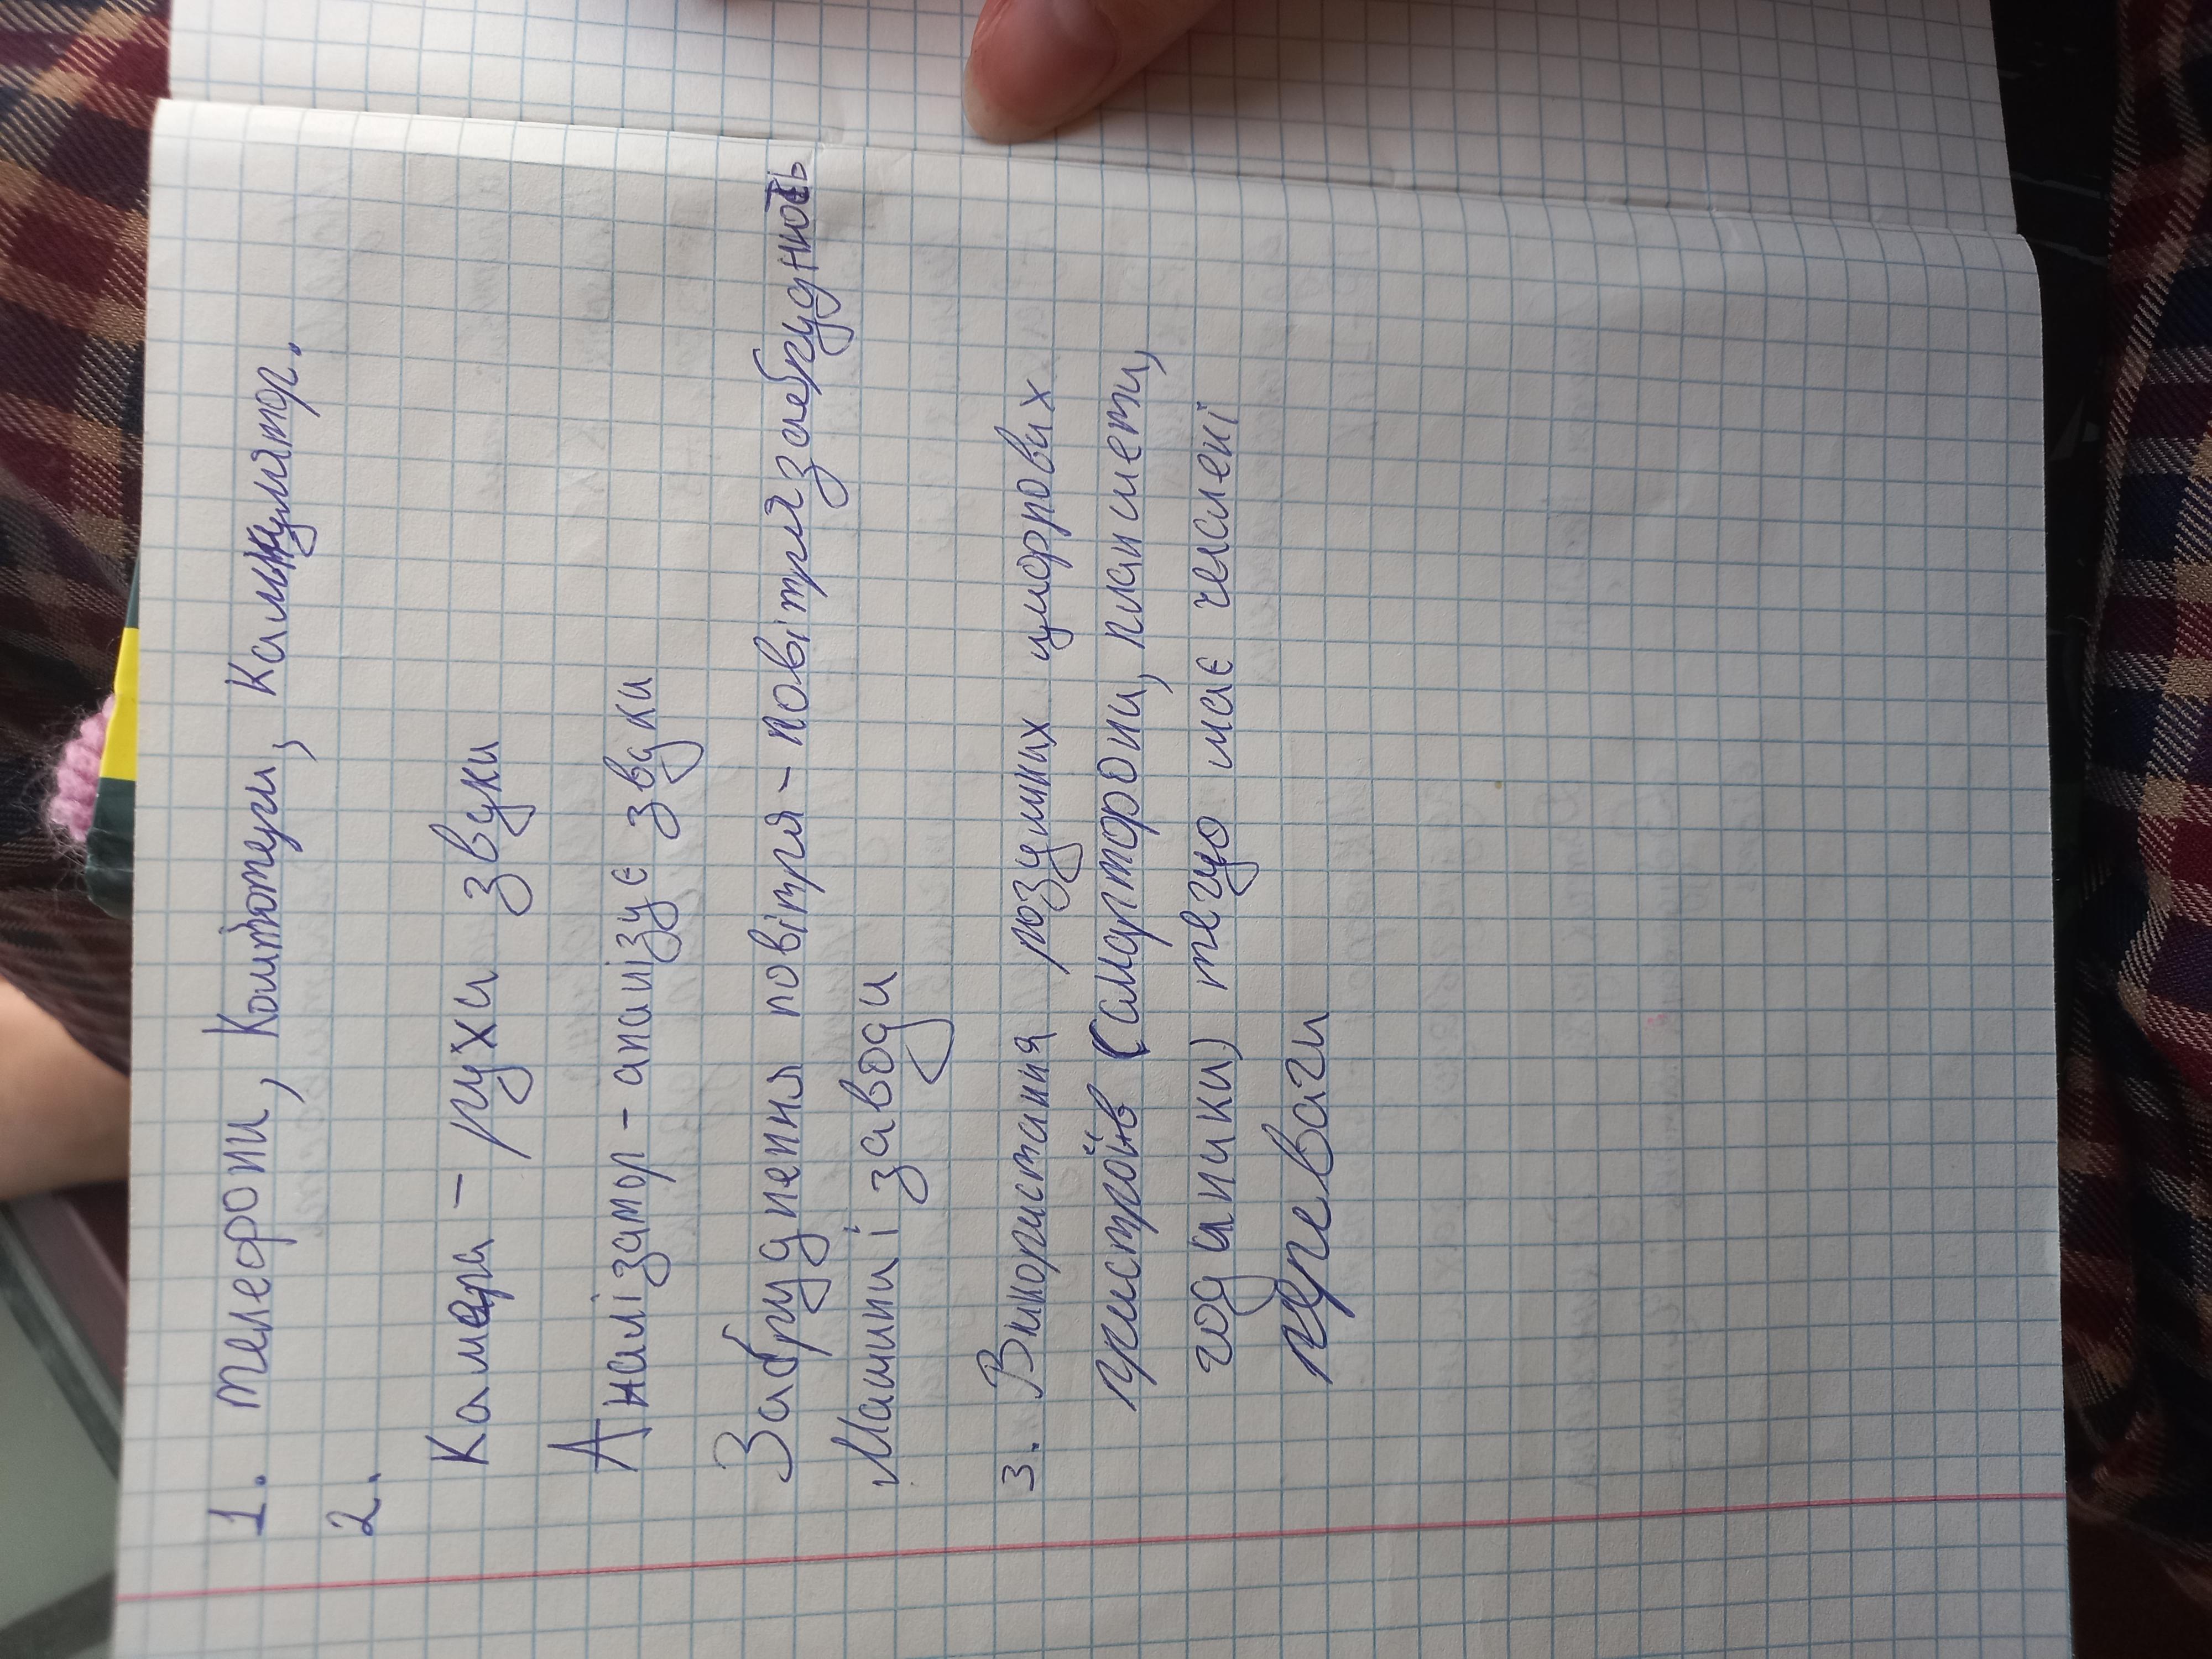 1. телефони, Комптюеги, Калькулятор.
2.
Камера – рухи звуки
Аналізатор – аналізує звдки
Забруднення повітря – повітря забрудність
Машини і заводи
3. Використання розумних цифрових
пристроїв (смартфони, планшети,
годинники) тегцо має численні
переваги